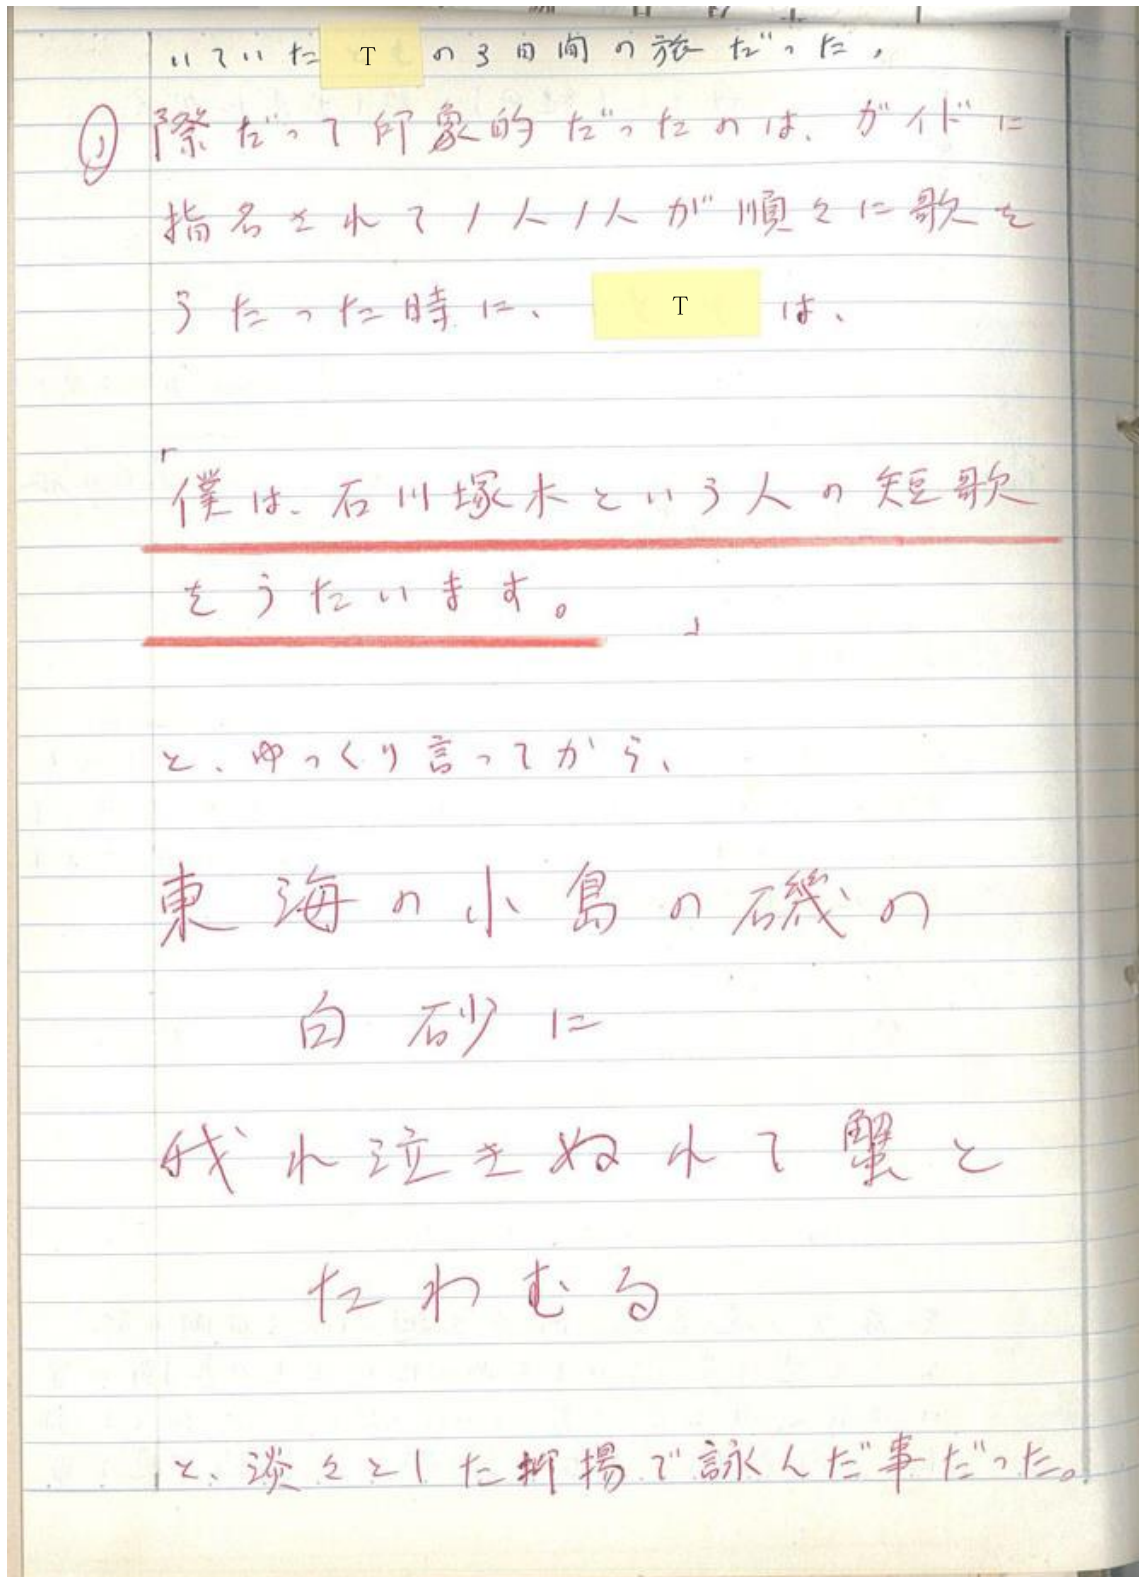 いていた T の3日間の旅だった。
① 際だって印象的だったのは、ガイドに
指名されて1人1人が順々に歌を
うたった時に、 T は、
「僕は、石川塚木という人の短歌
をうたいます。」
と、ゆっくり言ってから、
東海の小島の磯の
白砂に
我れ泣きぬれて蟹と
たわむる
と、淡々とした抑揚で詠んだ事だった。